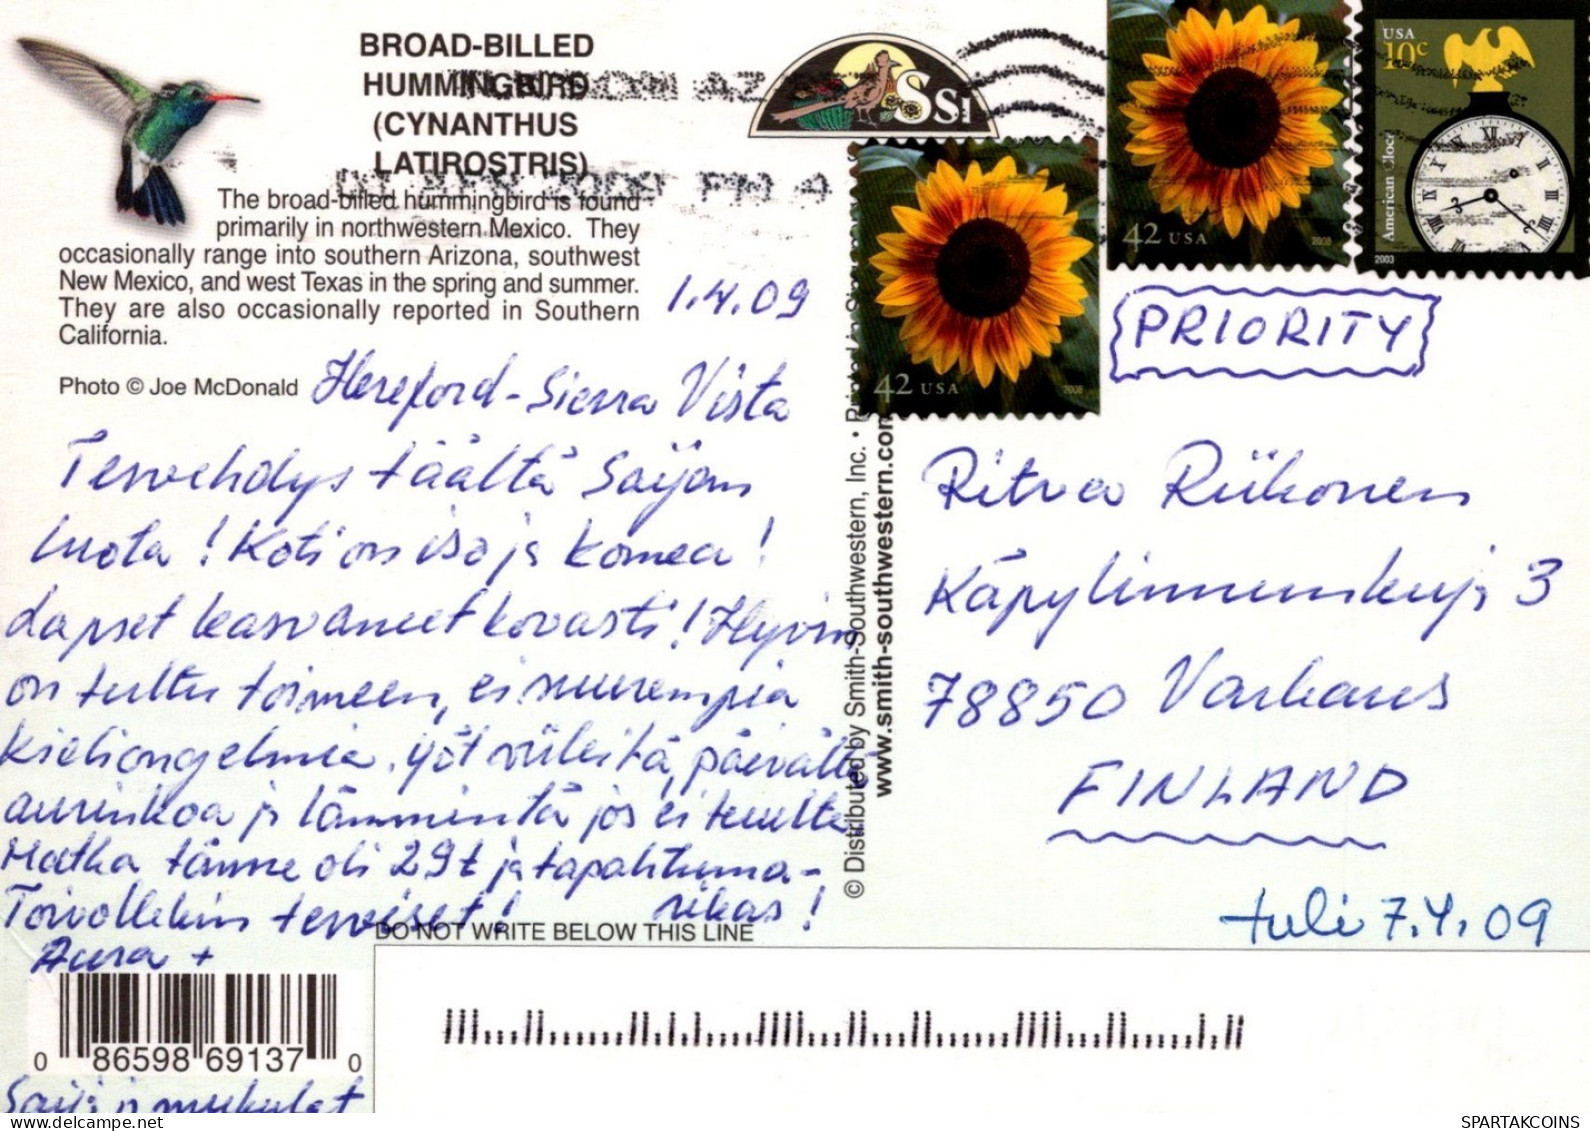 BROAD-BILLED
HUMMINGBIRD
(CYNANTHUS
LATIROSTRIS)
The broad-billed hummingbird is found
primarily in northwestern Mexico. They
occasionally range into southern Arizona, southwest
New Mexico, and west Texas in the spring and summer.
They are also occasionally reported in Southern
California.
Photo © Joe McDonald
1.4.09
Hereford - Sierra Vista
Tervehdys täältä Saijan
luota! Koti on iso ja komea!
Lapset kasvaneet kovasti! Hyvin
on tultu toimeen, ei suurempia
kieliongelmia. Yöt viileitä, päivällä
aurinkoa ja lämmintä jos ei tuulte
Matka tänne oli 29t ja tapahtuma-
rikas!
Toivollekin terveiset!
Aura +
Saija ja mukulat
DO NOT WRITE BELOW THIS LINE
0 86598 69137 0
SSI
© Distributed by Smith-Southwestern, Inc. • Printed in
www.smith-southwestern.com
42 USA
2008
42 USA
2008
USA
10c
American Clock
2003
AZ
2009 PM 4
PRIORITY
Ritva Riikonen
Käpylinnunkuja 3
78850 Varkaus
FINLAND
tuli 7.4.09
SPARTAKCOINS